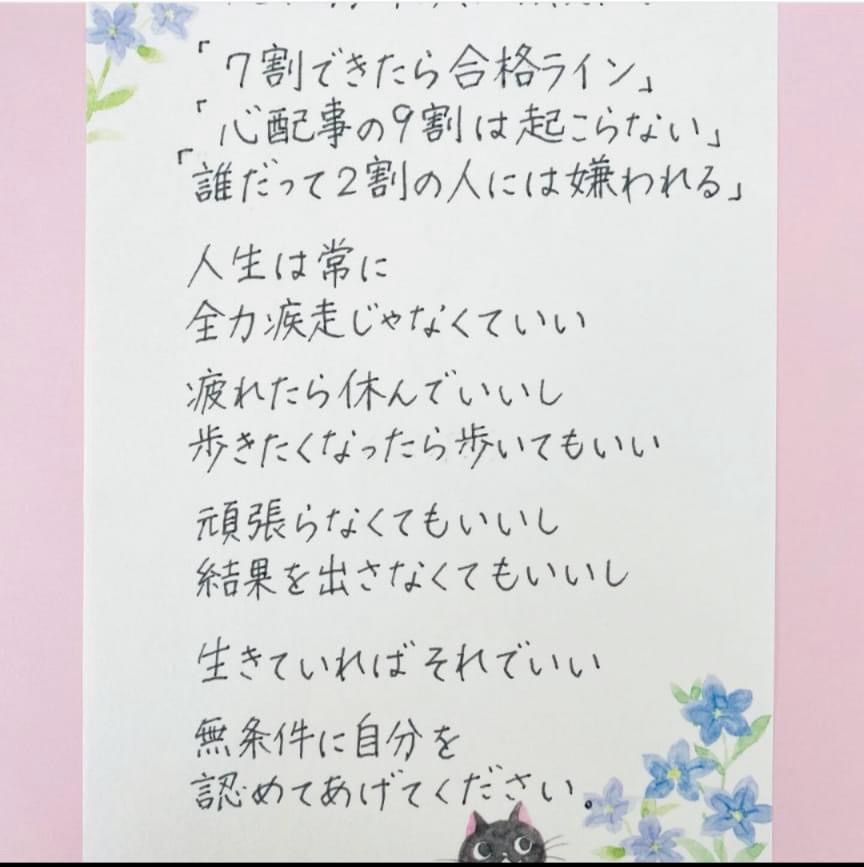 「7割できたら合格ライン」
「心配事の9割は起こらない」
「誰だって2割の人には嫌われる」
人生は常に
全力疾走じゃなくていい
疲れたら休んでいいし
歩きたくなったら歩いてもいい
頑張らなくてもいいし
結果を出さなくてもいいし
生きていればそれでいい
無条件に自分を
認めてあげてください。